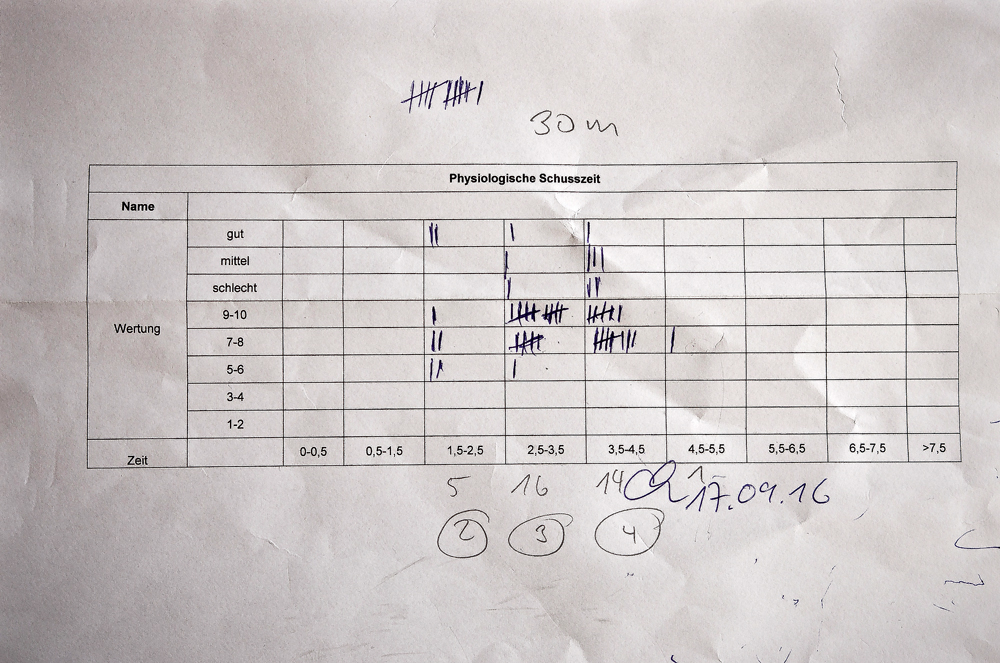 30 m
Physiologische Schusszeit
Name
Wertung
gut || | |
mittel | |||
schlecht | ||
9-10 |
7-8 || |
5-6 || |
3-4
1-2
Zeit 0-0,5 0,5-1,5 1,5-2,5 2,5-3,5 3,5-4,5 4,5-5,5 5,5-6,5 6,5-7,5 >7,5
5 16 14 1
17.09.16
2 3 4